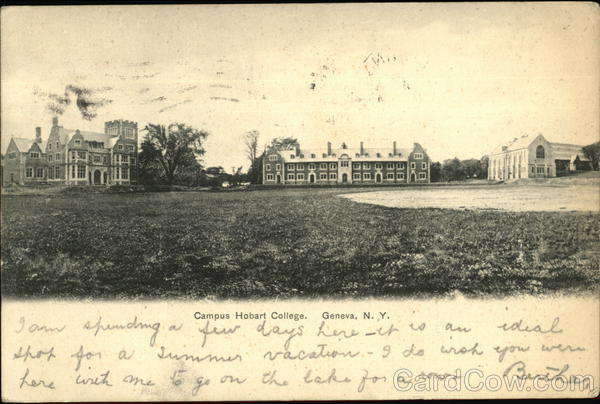 Campus Hobart College. Geneva, N. Y.
I am spending a few days here - it is an ideal
spot for a summer vacation - I do wish you were
here with me to go on the lake for a
CardCow.com